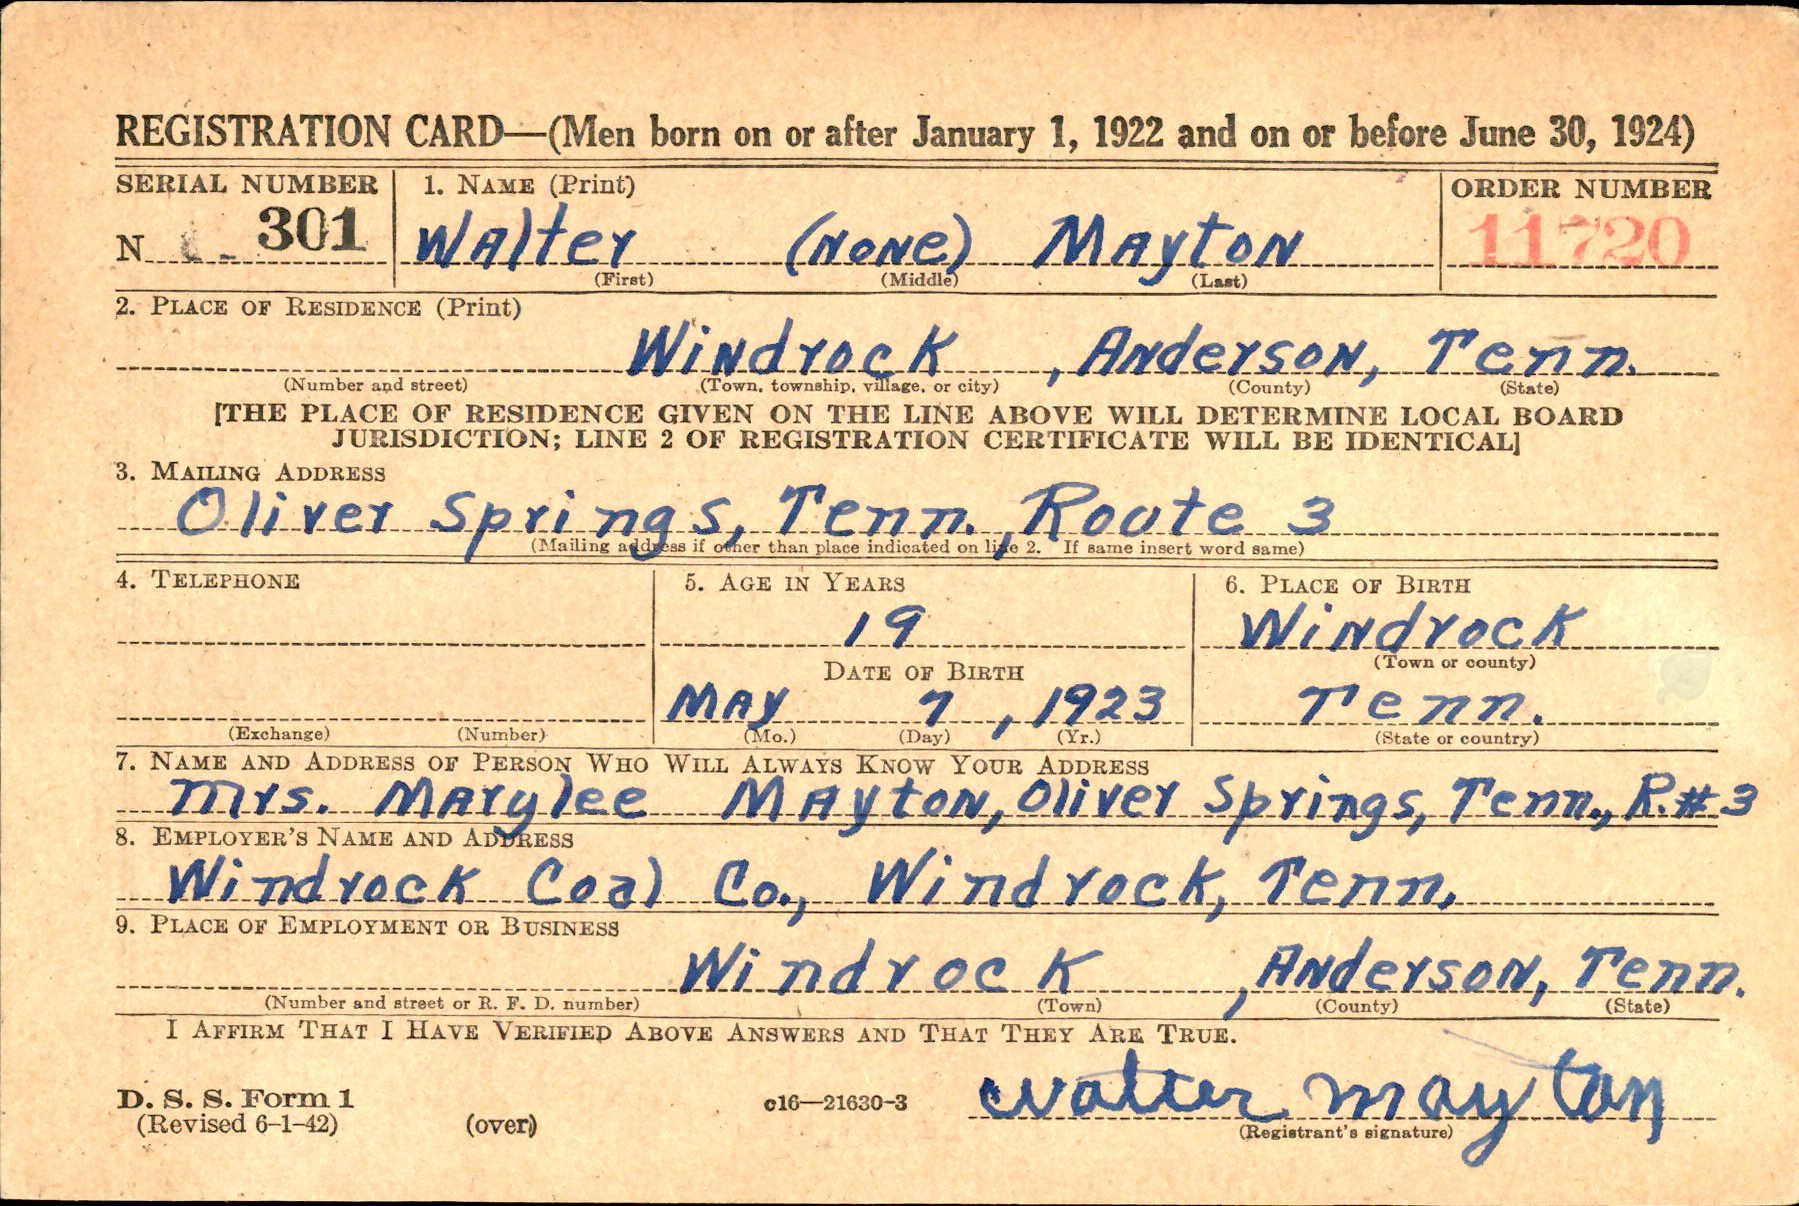 REGISTRATION CARD—(Men born on or after January 1, 1922 and on or before June 30, 1924)
SERIAL NUMBER 1. NAME (Print) ORDER NUMBER
N 301 Walter (None) Mayton 11720
(First) (Middle) (Last)
2. PLACE OF RESIDENCE (Print)
Windrock , Anderson, Tenn.
(Number and street) (Town, township, village, or city) (County) (State)
[THE PLACE OF RESIDENCE GIVEN ON THE LINE ABOVE WILL DETERMINE LOCAL BOARD
JURISDICTION; LINE 2 OF REGISTRATION CERTIFICATE WILL BE IDENTICAL]
3. MAILING ADDRESS
Oliver Springs, Tenn., Route 3
(Mailing address if other than place indicated on line 2. If same insert word same)
4. TELEPHONE 5. AGE IN YEARS 6. PLACE OF BIRTH
19 Windrock
DATE OF BIRTH (Town or county)
May 7, 1923 Tenn.
(Exchange) (Number) (Mo.) (Day) (Yr.) (State or country)
7. NAME AND ADDRESS OF PERSON WHO WILL ALWAYS KNOW YOUR ADDRESS
Mrs. Marylee Mayton, Oliver Springs, Tenn., R.#3
8. EMPLOYER'S NAME AND ADDRESS
Windrock Coal Co., Windrock, Tenn.
9. PLACE OF EMPLOYMENT OR BUSINESS
Windrock , Anderson, Tenn.
(Number and street or R. F. D. number) (Town) (County) (State)
I AFFIRM THAT I HAVE VERIFIED ABOVE ANSWERS AND THAT THEY ARE TRUE.
Walter Mayton
D. S. S. Form 1 c16—21630-3
(Revised 6-1-42) (over) (Registrant's signature)